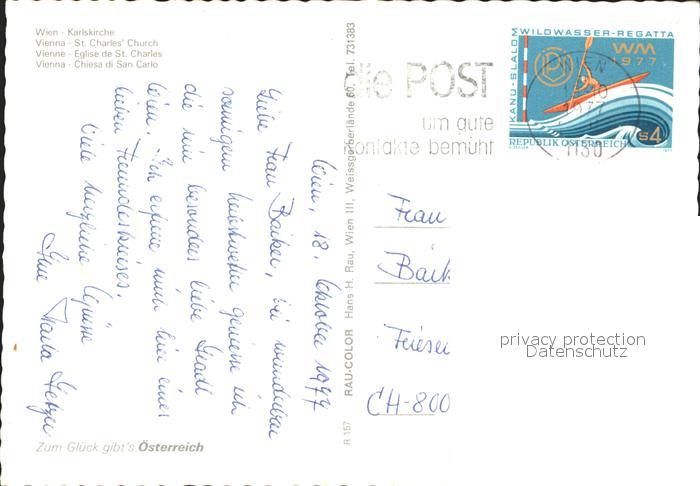 Wien - Karlskirche
Vienna - St. Charles' Church
Vienne - Eglise de St. Charles
Vienna - Chiesa di San Carlo
Wien, 18. Oktober 1977
Liebe Frau Baiker, bei wunderbar
sonnigem Herbstwetter geniesse ich
die mir besonders liebe Stadt
Wien. Ich erfreue mich hier eines
lieben Freundeskreises.
Viele herzliche Grüsse
Ihre Maria
Zum Glück gibt's Österreich
R 157 RAU-COLOR Hans H. Rau, Wien III, Weissgerberlände 60, Tel. 731383
die POST
um gute
Kontakte bemüht
WIEN
1977
1150
KANU-SLALOM WILDWASSER-REGATTA
WM
1977
S4
REPUBLIK ÖSTERREICH
Frau
Baik
Friesen
CH-800
privacy protection
Datenschutz